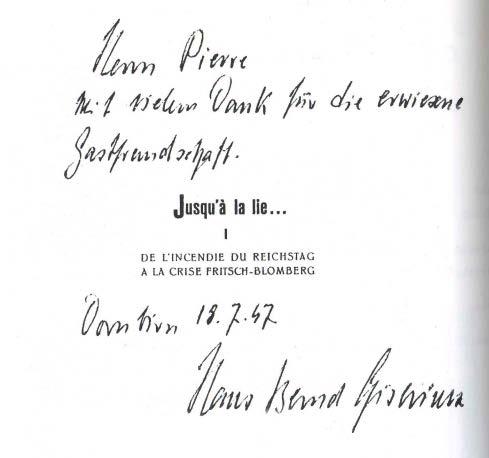 Herrn Pierre
mit vielem Dank für die erwiesene
Gastfreundschaft.
Jusqu'à la lie...
I
DE L'INCENDIE DU REICHSTAG
A LA CRISE FRITSCH-BLOMBERG
Dornbirn 18.7.47
Hans Bernd Gisevius